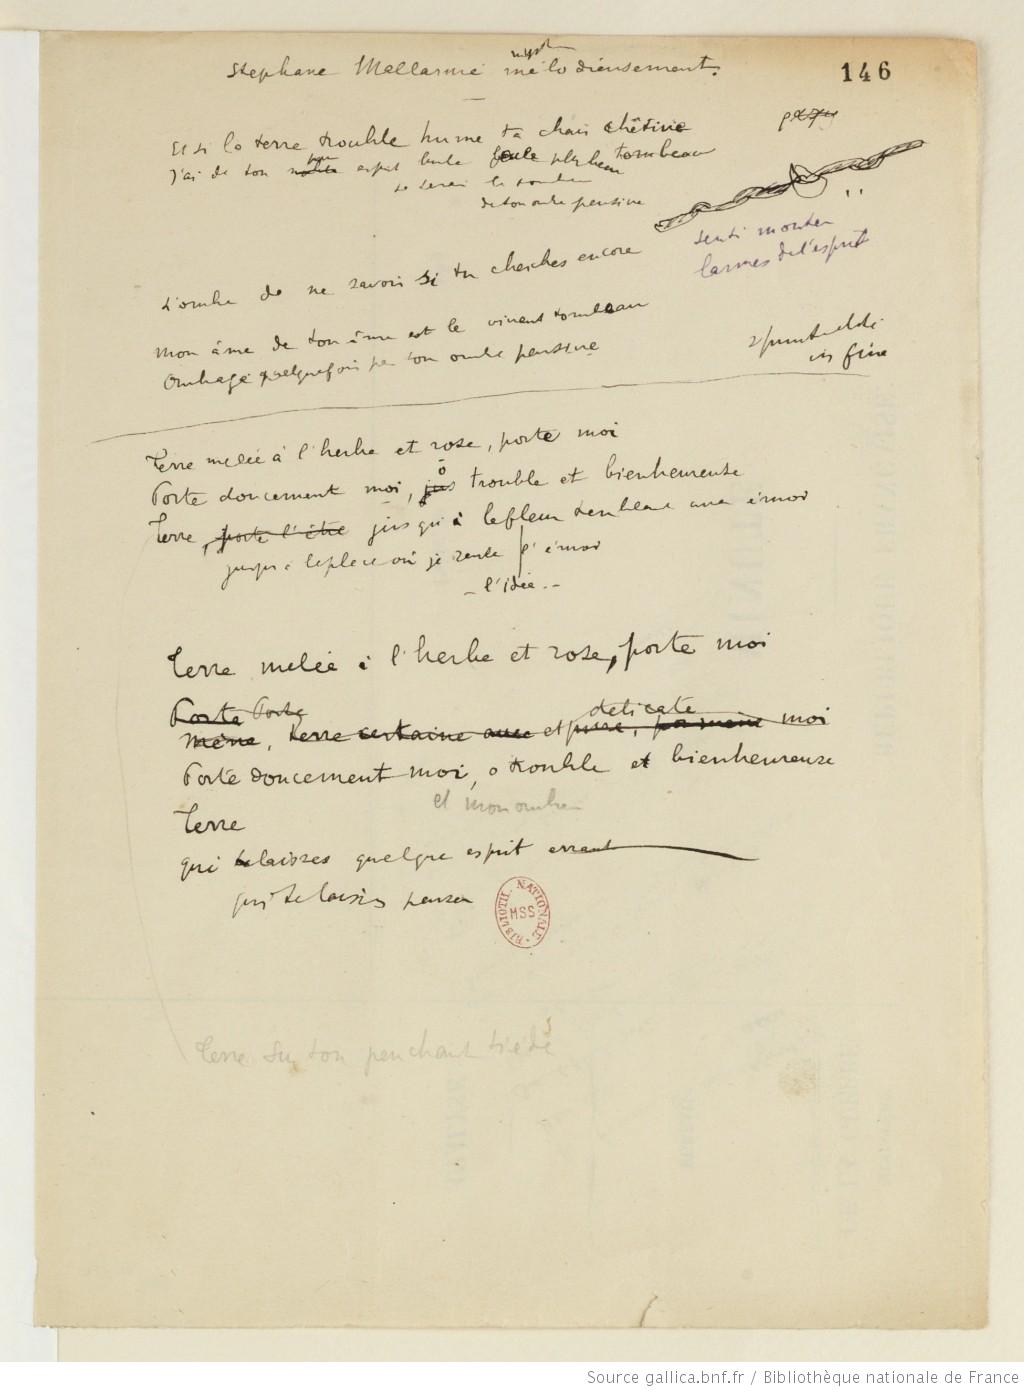 myst
Stephane Mallarmé mélodieusement.
146
Et si la terre trouble hume ta chair chétive
J'ai de ton esprit tombeau
de ton ombre pensive
senti monter
larmes de l'esprit
L'ombre de ne savoir si tu cherches encore
Mon âme de ton âme est le vivant tombeau
Ombragé quelquefois par ton ombre pensive
in fine
Terre mêlée à l'herbe et rose, porte moi
Porte doucement moi, ô trouble et bienheureuse
Terre, porte l'être jusqu'à émoi
jusqu'à la place où je l'émoi
- l'idée. -
Terre mêlée à l'herbe et rose, porte moi
Porte Porte delicate
Mène, terre certaine avec et pure, moi
Porte doucement moi, o trouble et bienheureuse
et mon ombre
Terre
qui laisses quelque esprit errant
qui te laisses penser
BIBLIOTH. NATIONALE MSS
Terre sur ton penchant tiède
Source gallica.bnf.fr / Bibliothèque nationale de France